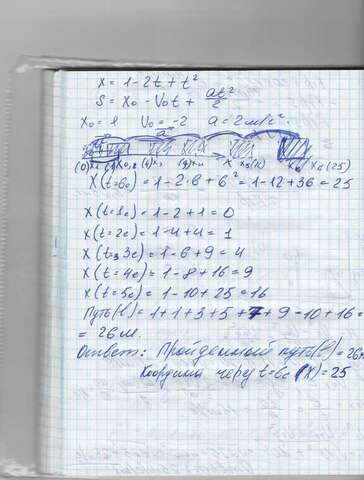 x = 1 - 2t + t²
S = x₀ - V₀t + at²/2
x₀ = 1 V₀ = -2 a = 2 м/с².
a
X(t=6с) = 1 - 2·6 + 6² = 1 - 12 + 36 = 25
X(t=1с) = 1 - 2 + 1 = 0
X(t=2с) = 1 - 4 + 4 = 1
X(t=3с) = 1 - 6 + 9 = 4
X(t=4с) = 1 - 8 + 16 = 9
X(t=5с) = 1 - 10 + 25 = 16
Путь(l) = 1 + 1 + 3 + 5 + 7 + 9 - 10 + 16 =
= 26 м.
Ответ: Пройденный путь(l) = 26м
Координа через t=6с (X) = 25